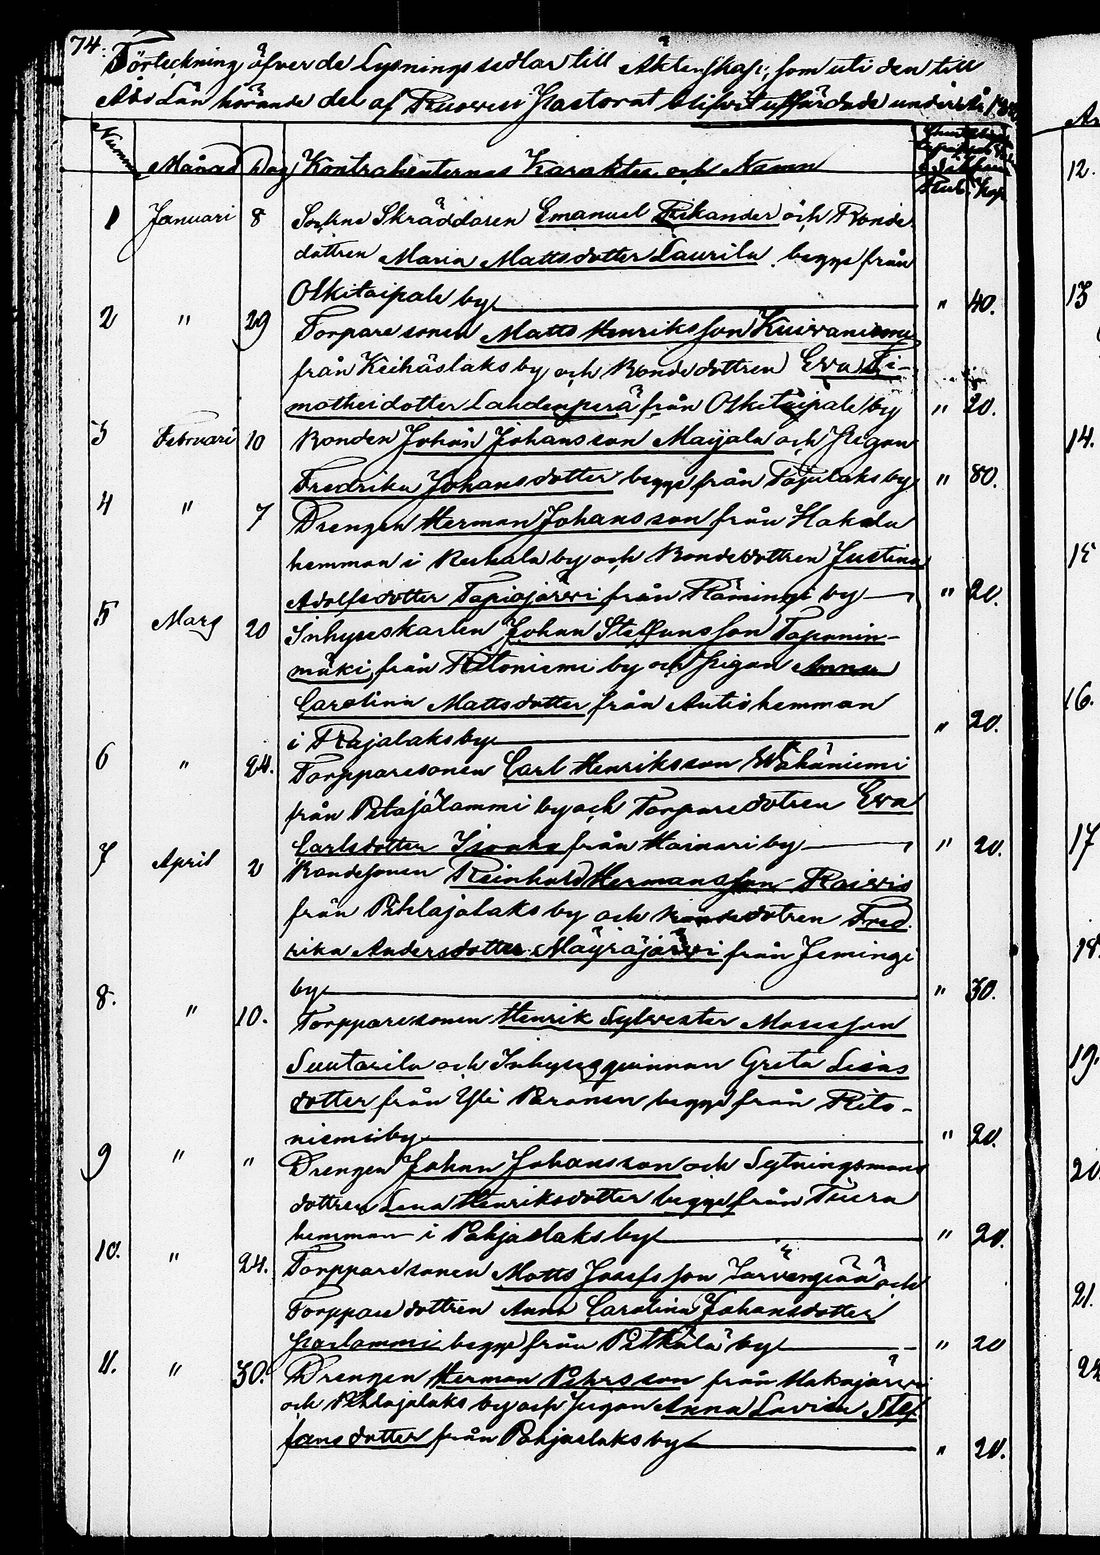 74.
Förteckning öfver de Lysningssedlar till Äktenskap, som uti den till
Åbo Län hörande del af Ruowesi Pastorat blifvit utfärdade under år
Månad Dag Kontrahenternas Karakter och Namn
Rub. Kop.
1 Januari 8 Sockne Skräddaren Emanuel Rekander och Bonde
dottren Maria Mattsdotter Laurila begge från
Olkitaipale by " 40.
2 " 29 Torpare sonen Matts Henriksson Kuivaniemi
från Keihäslaks by och Bondedottren Eva Ti-
motheidotter Lahdenperä från Olkitaipale by " 20.
3 Februari 10 Bonden Johan Johansson Maijala och Pigan
Fredrika Johansdotter begge från Pajulaks by " 80.
4 " 7 Drengen Herman Johansson från Hakala
hemman i Ruhala by och Bondedottren Justina
Adolfsdotter Tapiojärwi från Flämingi by " 20.
5 Mars 20 Inhyseskarlen Johan Staffansson Taponin-
mäki från Ritoniemi by och Pigan Anna
Carolina Mattsdotter från Antis hemman
i Pajalaks by " 20.
6 " 24. Torpparesonen Carl Henriksson Wähäniemi
från Petäjälammi by och Torparedotren Eva
Carlsdotter Isoaho från Mainari by " 20.
7 April 2 Bondesonen Reinhold Hermansson
från Pihlajalaks by och Bondedotren Fred
rika Andersdotter Mäyräjärvi från Jemingi
by " 30.
8. " 10. Torpparesonen Henrik Sylvester Mosesson
Suutarila och Inhysesqvinnan Greta Lisas
dotter från Yli Paronen begge från Rito-
niemi by " 20.
9 " " Drengen Johan Johansson och Sytningsmans
dottren Lena Henriksdotter begge från Tuira
hemman i Pohjaslaks by " 20.
10. " 24. Torpparesonen Matts Josefsson Jarvenpää och
Torppare dottren Anna Carolina Johansdotter
begge från Pitkälä by " 20
11. " 30. Drengen Herman Pehrsson från Makajärvi
och Pihlajalaks by och Pigan Anna Lovisa Stef
fansdotter från Pohjaslaks by " 20.
12.
13
14.
15
16.
17
18.
19.
20
21.
22